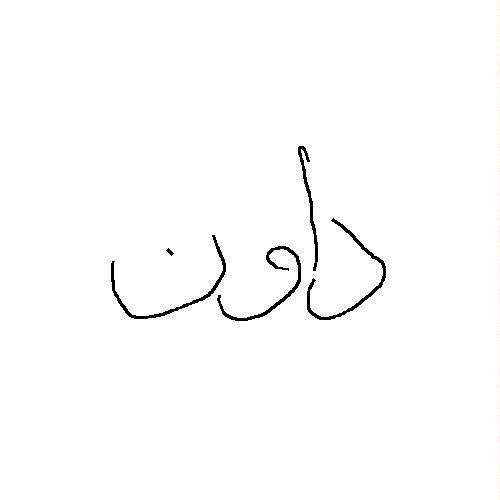 داون